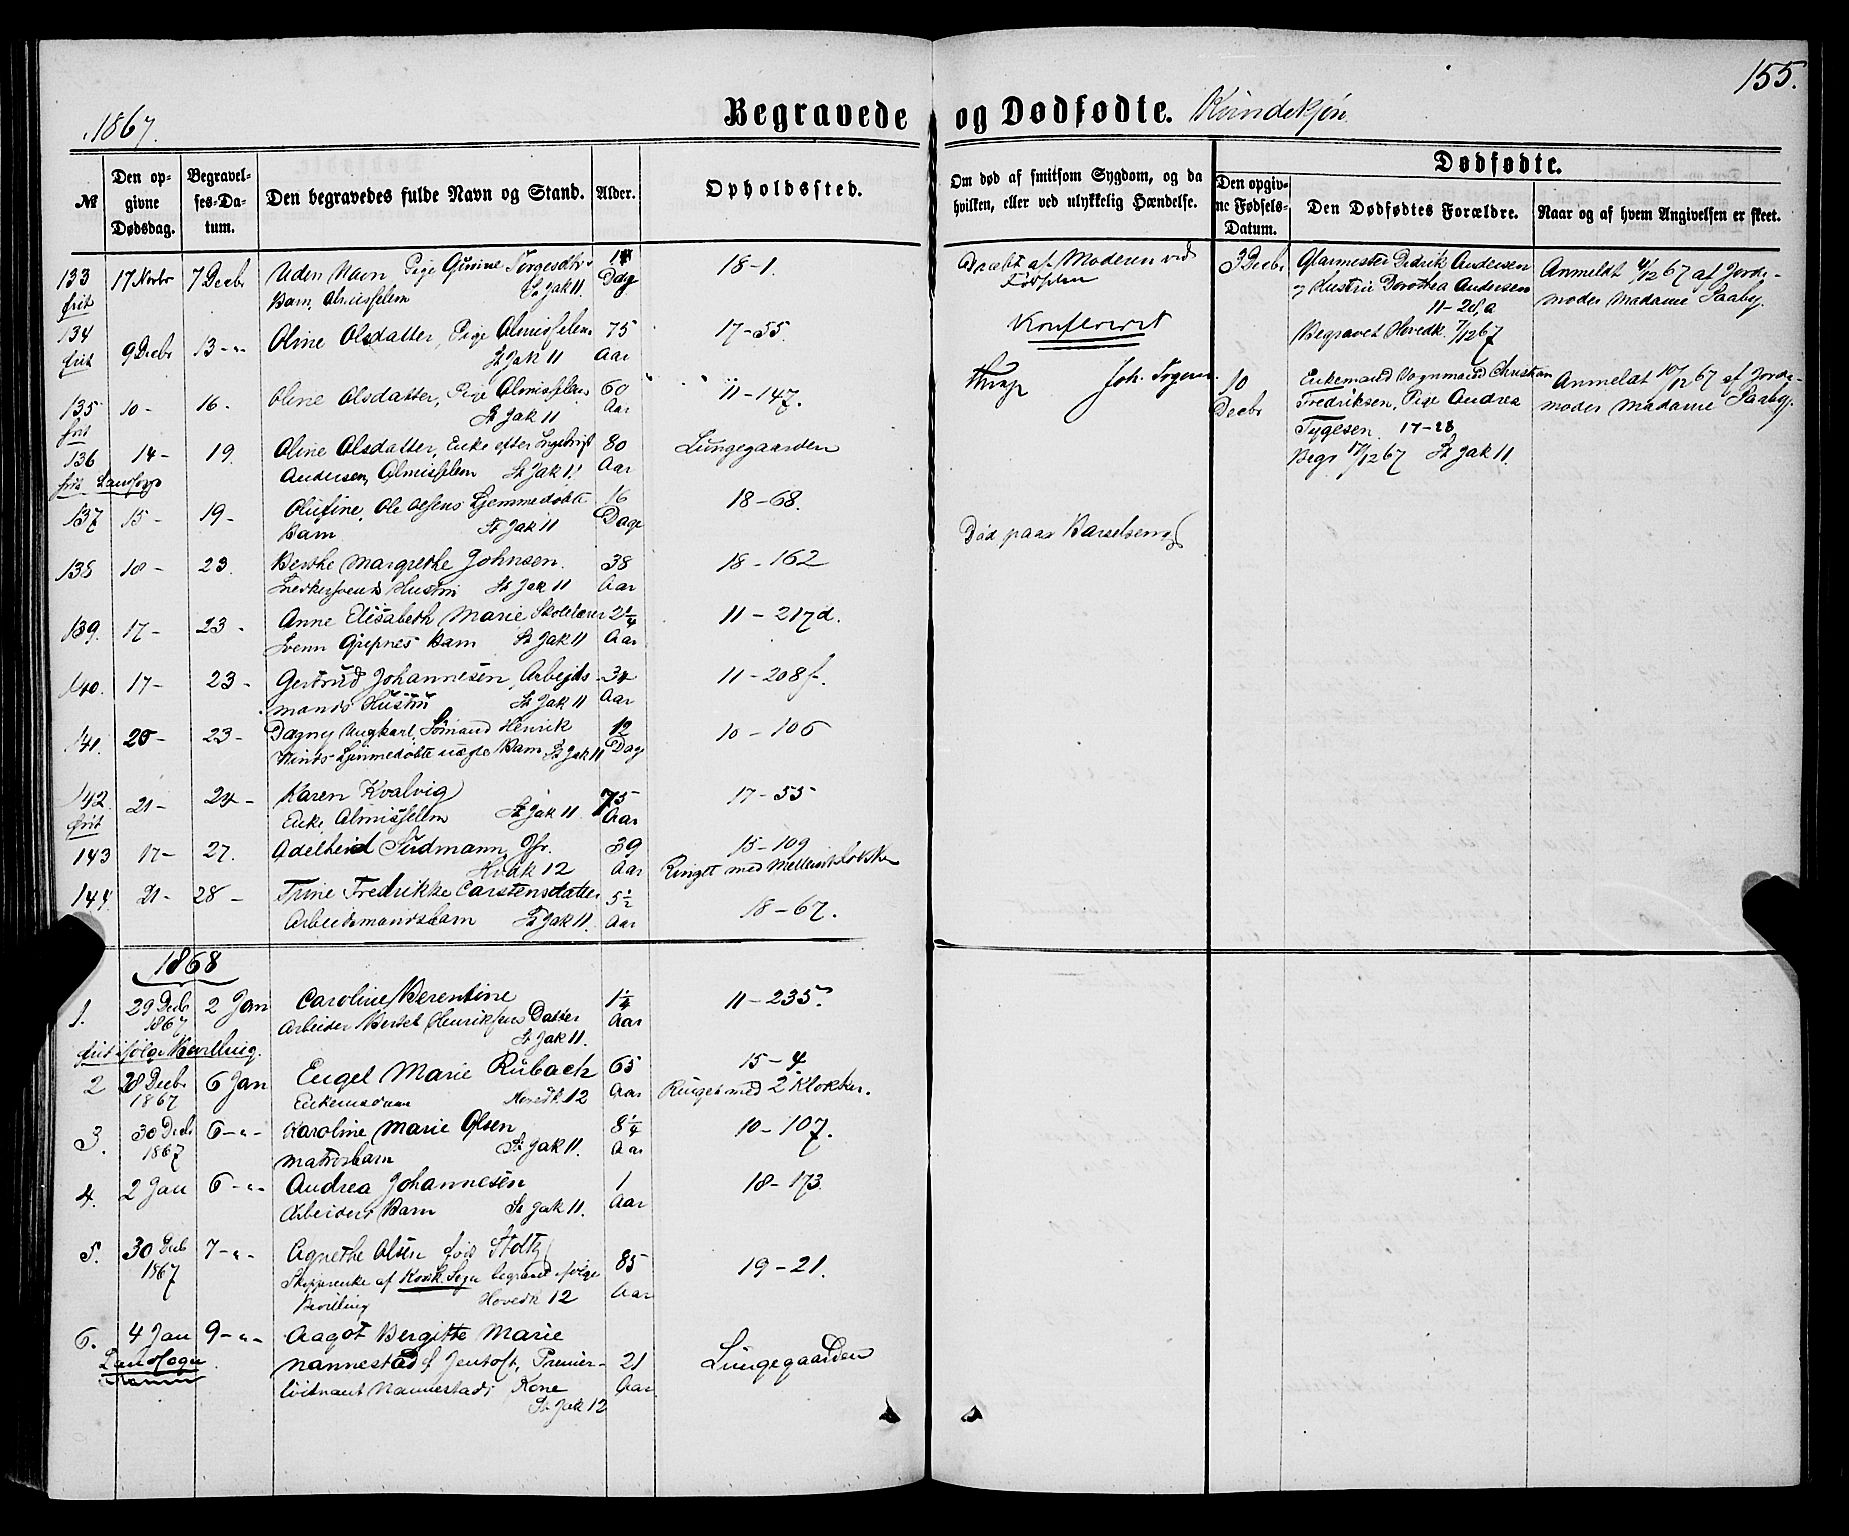 155.
1867.
Begravede og Dødfødte. Kvindekjøn.
№
Den opgivne Dødsdag.
Begravelses-Datum.
Den begravedes fulde Navn og Stand.
Alder.
Opholdssted.
Om død af smitsom Sygdom, og da hvilken, eller ved ulykkelig Hændelse.
Dødfødte.
Den opgivne Fødsels-Datum.
Den Dødfødtes Forældre.
Naar og af hvem Angivelsen er skeet.
133 17 Novbr 7 Decbr Uden Navn Pige Gunine Torgesdtrs 18-1. Dræbt af Moderen ved
frit Barn, Almisselem St Jak 11. Dag Fødslen
134 9 Decbr 13-"- Oline Olsdatter, Pige Almisselem 75 17-55. Konfereret
frit St Jak 11 Aar
135 10- 16- Oline Olsdatter, Pige Almisselem 60 11-147.
frit St Jak 11 Aar
136 14- 19. Oline Olsdatter, Enke efter 80 Lungegaarden
frit Landsogn Andersen, Almisselem St Jak 11 Aar
137 15- 19- Olufine, Ole Olsens hjemmedøbte 16 18-68.
Barn St Jak 11 Dage
138 18- 23. Berthe Margrethe Johnsen 38 18-162 Død paa Barselseng
Hustru St Jak 11 Aar
139. 17- 23- Anne Elisabeth Marie Skolelærer 2¼ 11-217d.
Svenn Gripnes Barn St Jak 11 Aar
140. 17- 23- Gertrud Johannesen, Arbeids- 34 11-208f.
mands Hustru St Jak 11 Aar
141. 20- 23- Dagny Ungkarl, Sømand Henrik 12 10-106
hjemmedøbte uægte Barn St Jak 11 Dag
142. 21- 24- Karen Kvalvig 75 17-55
frit Enke, Almisselem St Jak 11 Aar
143 17- 27. Adelheid Sudmann, Jfr. 39 15-109
Hvdk 12 Aar Ringet med Mellemklokken
144. 21- 28- Trine Fredrikke Carstensdatter 5½ 18-67.
Arbeidsmandsbarn St Jak 11. Aar
1868
1. 29 Decbr 2 Jan Caroline Berentine 1¼ 11-235.
1867 Arbeider Bertel Henriksens Datter Aar
frit ifølge Bevilling. St Jak 11.
2 28 Decbr 6 Jan Engel Marie Rubach 65 15-4
1867 Enkemadam Hovedk 12 Aar Ringet med 2 Klokker.
3. 30 Decbr 6-"- Karoline Marie Olsen 8¼ 10-107.
1867 Matrosbarn St Jak 11. Aar
4. 2 Jan 6-"- Andrea Johannesen 1 18-173
Arbeiders Barn St Jak 11. Aar
5. 30 Decb 7-"- Agnethe Olsen født Stoltz 85 19-21.
1867 Skipperenke af Korsk. Sogn begravet ifølge Aar
Bevilling Hovedk 12
6. 4 Jan 9-"- Aagot Bergitte Marie
Landsogn Nannestad f Jentoft, Premier- 21 Lungegaarden
løitnant Nannestads Kone Aar
St Jak 12
3 Decbr Glarmester Didrik Andersen Anmeldt 4/12 67 af Jorde-
og Hustru Dorothea Andersen moder Madame Saaby.
11-28,a
Begravet Hovedk. 7/12 67
10 Decbr Enkemand Vognmand Christian Anmeldt 10/12 67 af Jorde-
Fredriksen, Pige Andrea moder Madame Saaby.
Tygesen. 17-28
Begr 17/12 67 St Jak 11.